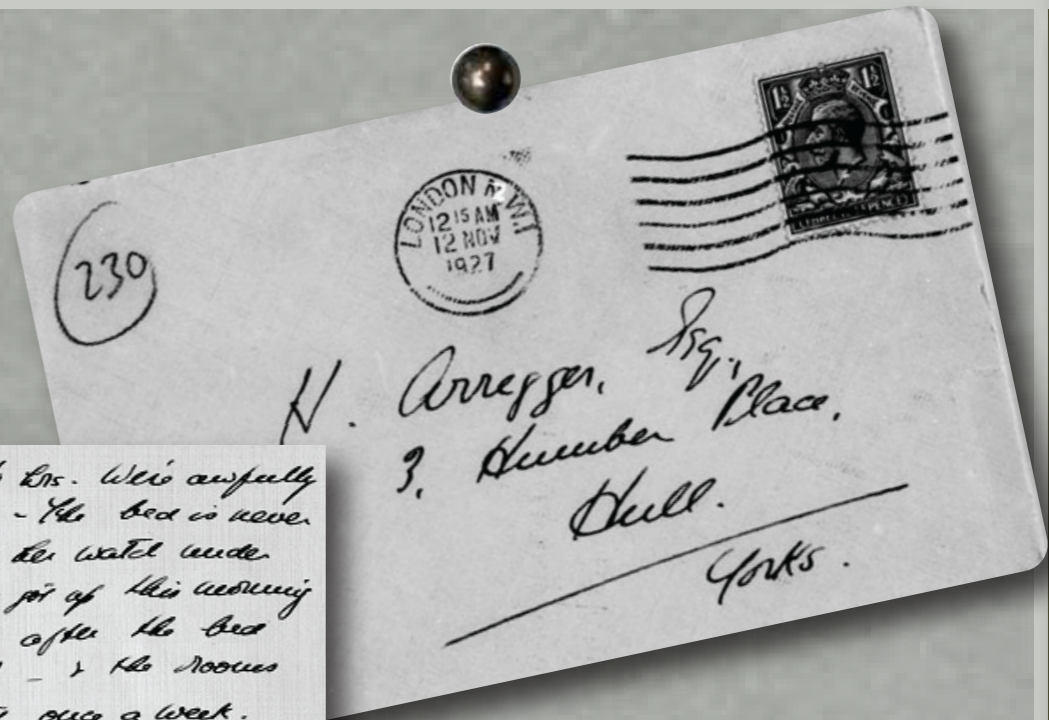 230
LONDON N.W.1
12 15 AM
12 NOV
1927
1½ 1½
H. Arregger, Esq.,
3, Humber Place,
Hull.
Yorks.
hrs. We're awfully
- The bed is never
her watch under
got up this morning
after the bed
& the rooms
once a week.